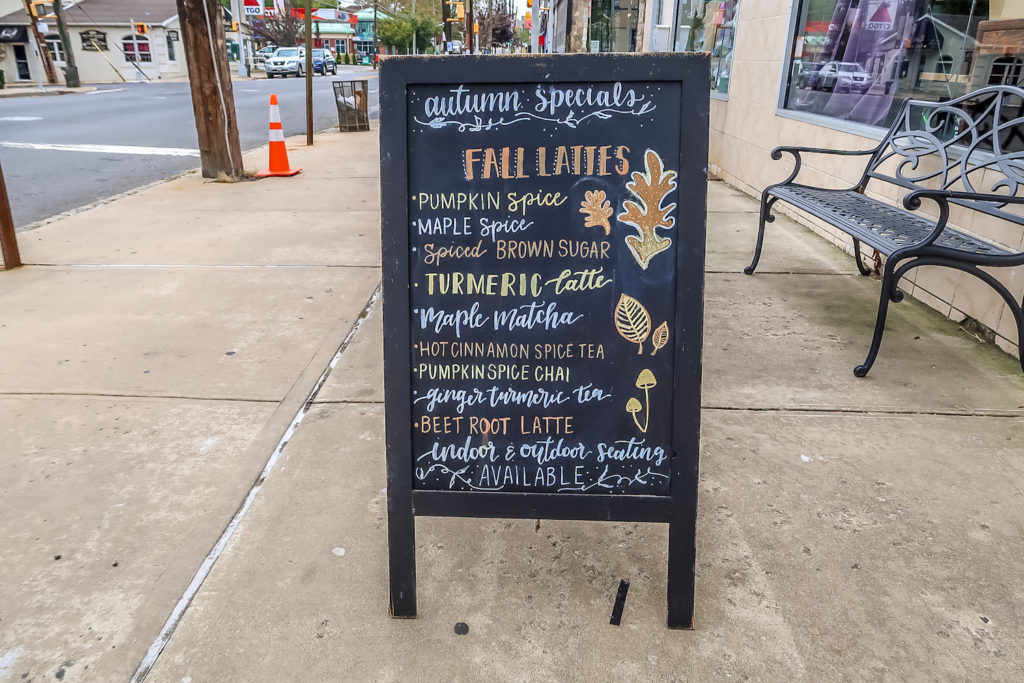 autumn specials
FALL LATTES
•PUMPKIN spice
•MAPLE spice
•Spiced BROWN SUGAR
•TURMERIC latte
•Maple Matcha
•HOT CINNAMON SPICE TEA
•PUMPKIN SPICE CHAI
•ginger turmeric tea
•BEET ROOT LATTE
indoor & outdoor seating
AVAILABLE
CITGO